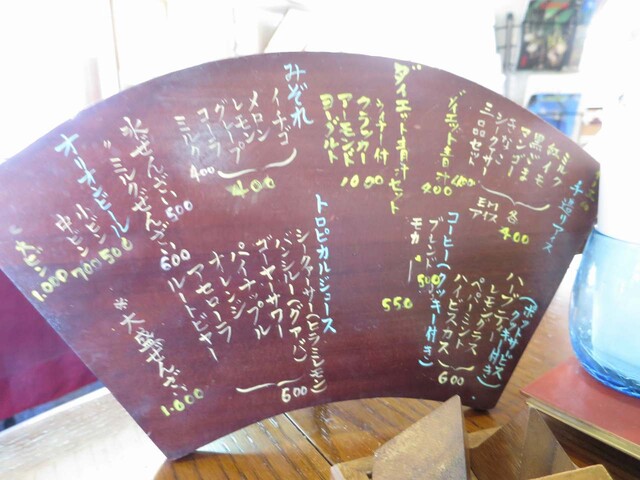 手造りアイス
ミルク
紅イモ
黒ごま
マンゴー
きなこ
シークワーサー
三品セット
EMアイス 各400
ダイエット青汁 400
ダイエット青汁セット
クラッカー
アーモンド
ヨーグルト
1000
みぞれ
イチゴ
メロン
レモン
400
コーラ
ミルク 400
氷ぜんざい 500
〃ミルクぜんざい 600
オリオンビール
小ビン 500
中ビン 700
大ビン 1,000
(ポットサービス
クッキー付き)
ハーブティー
レモングラス
ペパーミント
ハイビスカス
600
コーヒー(クッキー付き)
ブレンド 500
モカ 550
トロピカルジュース
シークワーサー(ヒラミレモン)
バンシルー(グァバ)
ゴーヤーサワー
パイナップル
オレンジ
アセローラ
ルートビヤー
600
※大盛ぜんざい 1,000